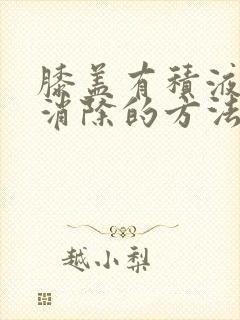 膝盖有積液
消除的方法
越小梨